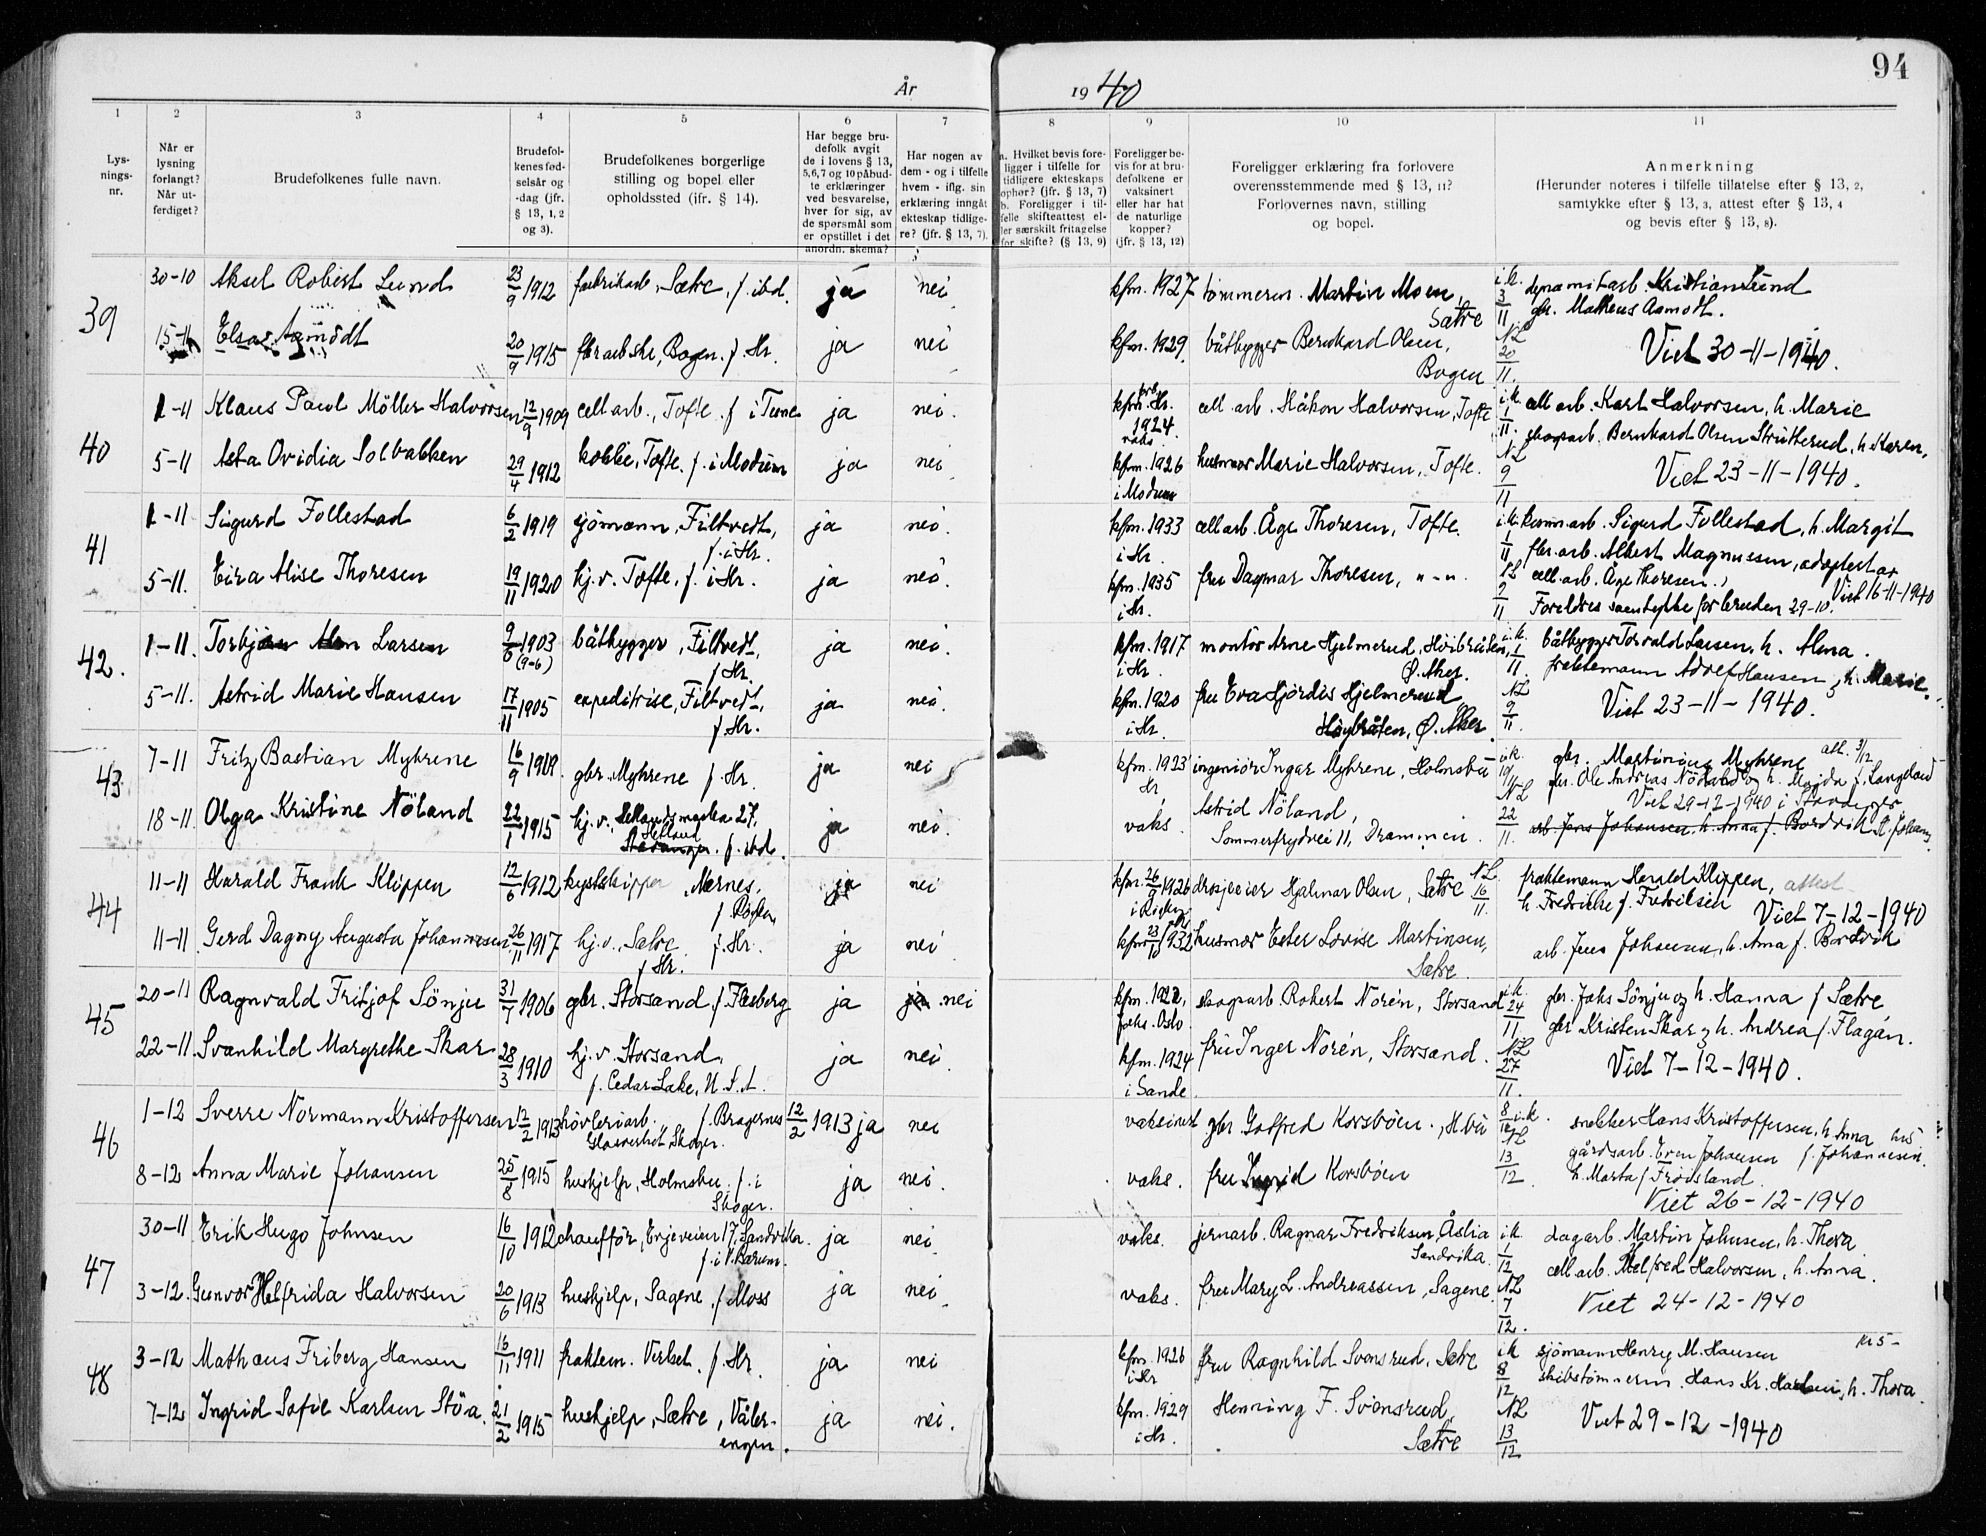 94
År 1940
1 2 3 4 5 6 7 8 9 10 11
Lysningsnr.
Når er lysning forlangt? Når utferdiget?
Brudefolkenes fulle navn.
Brudefolkenes fødselsår og -dag (jfr. § 13, 1, 2 og 3).
Brudefolkenes borgerlige stilling og bopel eller opholdssted (ifr. § 14).
Har begge brudefolk avgit de i lovens § 13, 5,6,7 og 10 påbudte erklæringer ved besvarelse, hver for sig, av de spørsmål som er opstillet i det anordn. skema?
Har nogen av dem - og i tilfelle hvem - iflg. sin erklæring inngåt ekteskap tidligere? (jfr. § 13, 7).
a. Hvilket bevis foreligger i tilfelle for tidligere ekteskaps ophør? (jfr. § 13, 7)
b. Foreligger i tilfelle skifteattest eller særskilt fritagelse for skifte? (§ 13, 9)
Foreligger bevis for at brudefolkene er vaksinert eller har hat de naturlige kopper? (jfr. § 13, 12)
Foreligger erklæring fra forlovere overensstemmende med § 13, 11? Forlovernes navn, stilling og bopel.
Anmerkning
(Herunder noteres i tilfelle tillatelse efter § 13, 2, samtykke efter § 13, 3, attest efter § 13, 4 og bevis efter § 13, 8).
39 30-10 Aksel Robert Lund 23/9 1912 fabrikarb., Sætre, f. ibd. ja nei kfm. 1927 tømmerm. Martin Moen, Sætre i.k. 3/11 dynamitarb. Kristian Lund
gbr. Matheus Aamodt.
15-11 Elsa Aamodt 20/9 1915 fbrarbske, Bogen. f. Hr. ja nei kfm. 1929 båtbygger Bernhard Olsen, Bogen NL 20/11. Viet 30-11-1940.
40 1-11 Klaus Paul Möller Halvorsen 12/9 1909 cell arb., Tofte. f i Tune ja nei. kfm. Hr. 1924. cell arb. Håkon Halvorsen, Tofte i.k. 1/11. cell arb. Karl Halvorsen, h. Marie
skogsarb. Bernhard Olsen Strutterud, h. Karen,
5-11 Asta Ovidia Solbakken 29/4 1912 kokke, Tofte. f. i Modum ja nei vaks kfm. 1926 i Modum husmor Marie Halvorsen, Tofte. NL 9/11 Viet 23-11-1940.
41 1-11 Sigurd Follestad 6/2 1919 sjömann, Filtvedt, f. i Hr. ja nei. kfm. 1933 i Hr. cell arb. Åge Thoresen, Tofte. i.k. 1/11 komm.arb. Sigurd Follestad, h. Margit
fbr. arb. Albert Magnussen, adoptert av
cell. arb. Åge Thoresen.,
5-11. Eira Alise Thoresen 19/11 1920 hj.v. Tofte, f. i Hr. ja nei. kfm. 1935 i Hr. fru Dagmar Thoresen, "-". NL 9/11 Viet 16-11-1940
Foreldres samtykke for bruden 29-10.
42. 1-11. Torbjørn Larsen 9/6 1903 (9-6) båtbygger, Filtvedt, f Hr. ja nei. kfm. 1917 i Hr. montør Arne Hjelmerud, Høibråten, Ø. Aker. i.k. 1/11. båtbygger Torvald Larsen, h. Alma.
fraktemann Adolf Hansen, h. Marie.
5-11. Astrid Marie Hansen 17/11 1905 expeditrise, Filtvedt, f. Hr. ja nei. kfm. 1920 i Hr. fru Eva Hjördis Hjelmerud Höybråten, Ø. Aker. NL 9/11. Viet 23-11-1940.
43 7-11 Fritz Bastian Myhrene 16/9 1909 gbr. Myhrene f. Hr. ja nei kfm. 1923 Hr, ingeniör Ingar Myhrene, Holmsbu i.k. 19/11 gbr. Martinius Myhrene att. 3/12
gbr. Ole Andreas Nöland og h. Magda f. Langeland
Viet 29-12-1940 i Stavanger
18-11. Olga Kristine Nöland 22/1 1915 hj.v. 27, Stavanger. f. ibd. ja nei. vaks. Astrid Nöland, Sommerfrydvei 11, Drammen. NL 22/11. arb. Jens Johansen, h. Anna f. Bordvik
44 11-11 Harald Frank Klippen 12/6 1912 kystskipper Nærnes, f. Röyken ja nei kfm. 26/9 1926 drosjeeier Hjalmar Olsen, Sætre NL 16/11. fraktemann Harald Klippen, attest
h. Fredrikke f. Fredriksen Viet 7-12-1940
11-11 Gerd Dagny Augusta Johannesen 26/11 1917 hj.v. Sætre f. Hr. f. Hr. ja nei kfm 23/10 1932 husmor Ester Lovise Martinsen, Sætre. arb. Jens Johansen, h. Anna f. Bordvik
45 20-11 Ragnvald Fritjof Sönju 31/7 1906 gbr. Storsand. f Flesberg ja ja nei kfm. 1922, Oslo. skogsarb. Robert Norén, Storsand i.k. 24/11 gbr. Johs Sönju og h. Hanna f Sætre
gbr Kristen Skar og h. Andrea f. Flagan.
22-11. Svanhild Margrethe Skar 28/3 1910 hj.v. Storsand, f. Cedar Lake, U.S.A. ja nei. kfm. 1924 i Sande fru Inger Norén, Storsand. NL 27/11. Viet 7-12-1940.
46 1-12 Sverre Normann Kristoffersen 12/2 1913 hövleriarb. f. Bragernes 12/2 1913 ja nei vaksinert gbr Gotfred Korsböen., H.bu 8/12 i.k. snekker Hans Kristoffersen, h. Anna
gårdsarb. Even Johansen f. Johannesen.
h. Marta f Frøisland.
8-12 Anna Marie Johansen 25/8 1915 huskjelp, Holmsbu. f. i Skoger. ja nei. vaks. fru Ingrid Korsböen NL 13/12. Viet 26-12-1940
47 30-11 Erik Hugo Johnsen 16/10 1912 chauffør, Enjeveien 17, Sandvika. f. i V. Bærum. ja nei. vaks. jernarb. Ragnar Fredriksen, Sandvika. i.k. 1/12 dagarb. Martin Johnsen, h. Thora
cell arb. Halvorsen, h. Anna.
3-12. Gunvor Helfrida Halvorsen 20/6 1913 huskjelp, Sagene. f Moss ja nei. vaks. fru Mary L. Andreassen, Sagene. NL 7/12. Viet 24-12-1940
48 3-12 Mathæus Friberg Hansen 16/11 1911 fraktem. Verket. f. Hr. ja nei kfm. 1926 i Hr fru Ragnhild Svensrud, Sætre i k 8/12 sjömann Henry M. Hansen kr 5-
skibstømmerm. Hans Kr. Karlsen, h. Thora.
7-12 Ingrid Sofie Karlsen Stöa. 21/2 1915 huskjelp, Sætre, Vålerengen. ja nei. kfm. 1929 i Hr. Henning F. Svensrud, Sætre NL 13/12 Viet 29-12-1940